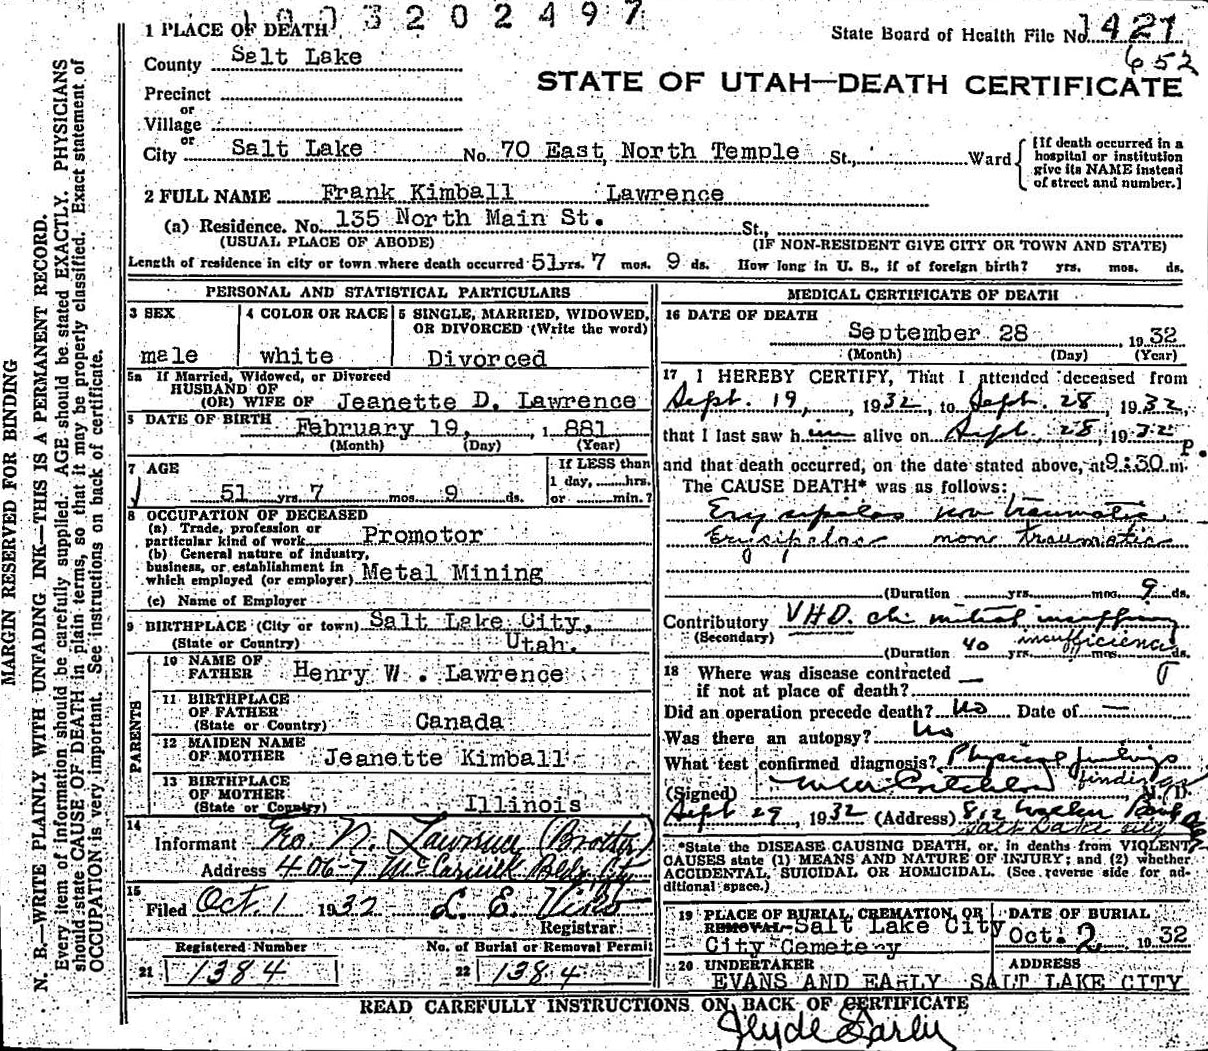 1003202497
1 PLACE OF DEATH
State Board of Health File No. 1427
652
County Salt Lake
STATE OF UTAH—DEATH CERTIFICATE
Precinct
or
Village
or
City Salt Lake No. 70 East North Temple St., Ward
[If death occurred in a hospital or institution give its NAME instead of street and number.]
2 FULL NAME Frank Kimball Lawrence
(a) Residence. No. 135 North Main St. St.,
(USUAL PLACE OF ABODE) (IF NON-RESIDENT GIVE CITY OR TOWN AND STATE)
Length of residence in city or town where death occurred 51 yrs. 7 mos. 9 ds. How long in U. S., if of foreign birth? yrs. mos. ds.
PERSONAL AND STATISTICAL PARTICULARS
3 SEX
male
4 COLOR OR RACE
white
5 SINGLE, MARRIED, WIDOWED, OR DIVORCED (Write the word)
Divorced
5a If Married, Widowed, or Divorced
HUSBAND OF
(OR) WIFE OF Jeanette D. Lawrence
DATE OF BIRTH February 19, 1881
(Month) (Day) (Year)
7 AGE
51 yrs. 7 mos. 9 ds.
If LESS than
1 day, hrs.
or min.?
8 OCCUPATION OF DECEASED
(a) Trade, profession or
particular kind of work Promotor
(b) General nature of industry,
business, or establishment in
which employed (or employer) Metal Mining
(c) Name of Employer
9 BIRTHPLACE (City or town) Salt Lake City,
(State or Country) Utah.
PARENTS
10 NAME OF
FATHER Henry W. Lawrence
11 BIRTHPLACE
OF FATHER
(State or Country) Canada
12 MAIDEN NAME
OF MOTHER Jeanette Kimball
13 BIRTHPLACE
OF MOTHER
(State or Country) Illinois
14
Informant Geo. N. Lawrence (Brother)
Address 406-7 McCornick Bldg City
15
Filed Oct. 1 1932
Registrar
Registered Number No. of Burial or Removal Permit
21 1384 22 1384
MEDICAL CERTIFICATE OF DEATH
16 DATE OF DEATH
September 28 1932
(Month) (Day) (Year)
17 I HEREBY CERTIFY, That I attended deceased from
Sept. 19, 1932, to Sept. 28, 1932,
that I last saw him alive on Sept. 28, 1932
and that death occurred, on the date stated above, at 9:30 P. m.
The CAUSE DEATH* was as follows:
Erysipelas non traumatic
Erysipelas non traumatic
(Duration yrs. mos. 9 ds.
Contributory V.H.D. chr mitral insufficiency
(Secondary) insufficiency
(Duration 40 yrs. mos. ds.
18 Where was disease contracted
if not at place of death?
Did an operation precede death? No Date of —
Was there an autopsy? No
What test confirmed diagnosis? Physical findings
findings
(Signed) M. D.
Sept 29, 1932 (Address) 812 Walker Bank
Salt Lake City
*State the DISEASE CAUSING DEATH, or, in deaths from VIOLENT CAUSES state (1) MEANS AND NATURE OF INJURY; and (2) whether ACCIDENTAL, SUICIDAL OR HOMICIDAL. (See reverse side for additional space.)
19 PLACE OF BURIAL, CREMATION, OR
REMOVAL Salt Lake City
City Cemetery
DATE OF BURIAL
Oct. 2 1932
20 UNDERTAKER ADDRESS
EVANS AND EARLY SALT LAKE CITY
READ CAREFULLY INSTRUCTIONS ON BACK OF CERTIFICATE
Clyde Early
MARGIN RESERVED FOR BINDING
N. B.—WRITE PLAINLY WITH UNFADING INK—THIS IS A PERMANENT RECORD.
Every item of information should be carefully supplied. AGE should be stated EXACTLY. PHYSICIANS
should state CAUSE OF DEATH in plain terms, so that it may be properly classified. Exact statement of
OCCUPATION is very important. See instructions on back of certificate.